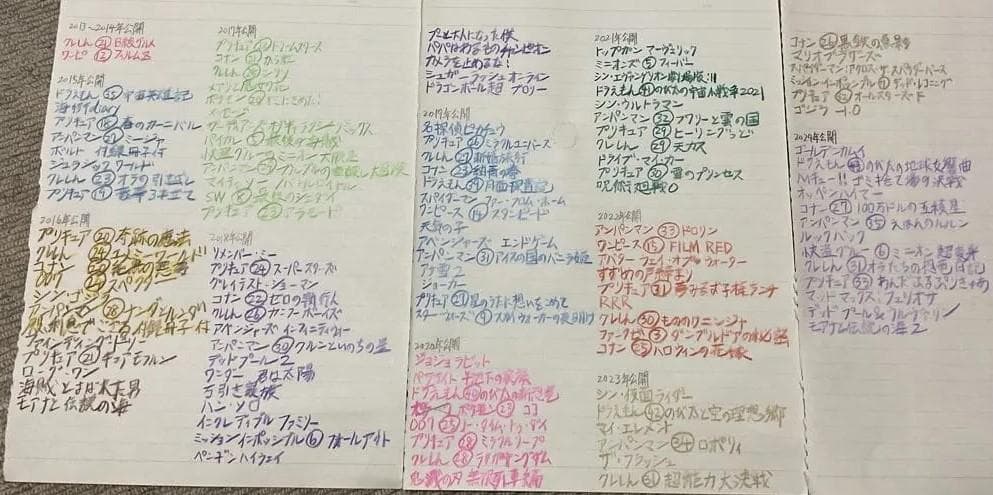 2013~2014年公開
クレしん㉑B級グルメ
ワンピ⑫フィルムZ
2015年公開
ドラえもん㉟宇宙英雄記
海街diary
プリキュア⑱春のカーニバル
アンパンマン㉗ミージャ
ボルト 付録冊子付
ジュラシックワールド
クレしん㉓オラの引越し
プリキュア⑲豪華3本立て
2016年公開
プリキュア⑳奇跡の魔法
クレしん㉔ユメミーワールド
コナン⑳純黒の悪夢
007 ㉔スペクター
シン・ゴジラ
アンパンマン㉘ナンダとルンダ
付録冊子付
ファインディングドリー
プリキュア㉑キュアモフルン
ローグ・ワン
海賊とよばれた男
モアナと伝説の海
2017年公開
プリキュア㉒ドリームスターズ
コナン㉑から紅
クレしん㉕シリリ
メッセージ
パイカリ⑤最後の海賊
怪盗グルーミニオン大脱走
アンパンマン㉙ブルブルの宝探し大冒険
SW⑧最後のジェダイ
プリキュア㉓アラモード
2018年公開
リメンバー・ミー
プリキュア㉔スーパースターズ
グレイテスト・ショーマン
コナン㉒ゼロの執行人
クレしん㉖カンフーボーイズ
アベンジャーズ インフィニティウォー
アンパンマン㉚クルンといのちの星
デッドプール2
ワンダー 君は太陽
万引き家族
ハン・ソロ
インクレディブル ファミリー
ミッションインポッシブル⑥フォールアウト
ペンギンハイウェイ
プーと大人になった僕
パパはわるものチャンピオン
カメラを止めるな!
シュガーラッシュオンライン
ドラゴンボール超 ブロリー
2019年公開
名探偵ピカチュウ
プリキュア㉖ミラクルユニバース
クレしん㉗新婚旅行
コナン㉓紺青の拳
ドラえもん㊴月面探査記
スパイダーマン ファー・フロム・ホーム
ワンピース⑭スタンピード
天気の子
アベンジャーズ エンドゲーム
アンパンマン㉛アイスの国のバニラ姫
アナ雪2
ジョーカー
プリキュア㉗星のうたに想いをこめて
スター・ウォーズ⑨スカイウォーカーの夜明け
2020年公開
ジョジョラビット
ドラえもん㊵のび太の新恐竜
ポケモン㉓ココ
007㉕ノー・タイム・トゥ・ダイ
プリキュア㉘ミラクルリープ
クレしん㉘ラクガキングダム
鬼滅の刃 無限列車編
2021年公開
トップガン マーヴェリック
ミニオンズ⑤フィーバー
シン・エヴァンゲリオン劇場版:||
ドラえもん㊶のび太の宇宙小戦争2021
シン・ウルトラマン
アンパンマン㉜フワリーと雲の国
プリキュア㉙ヒーリングっど
クレしん㉙天カス
ドライブ・マイ・カー
プリキュア㉚雪のプリンセス
呪術廻戦0
2022年公開
アンパンマン㉝ドロリン
ワンピース⑮FILM RED
アバター ウェイ・オブ・ウォーター
すずめの戸締まり
プリキュア㉛夢みるお子様ランチ
RRR
クレしん㉚もののけニンジャ
ファンタビ③ダンブルドアの秘密
コナン㉕ハロウィンの花嫁
2023年公開
シン・仮面ライダー
ドラえもん㊷のび太と空の理想郷
マイ・エレメント
アンパンマン㉞ロボリィ
ザ・フラッシュ
クレしん㉛超能力大決戦
コナン㉖黒鉄の魚影
マリオブラザーズ
スパイダーマン:アクロス・ザ・スパイダーバース
ミッションインポッシブル⑦デッドレコニング
プリキュア㉜オールスターズF
ゴジラ-1.0
2024年公開
ゴールデンカムイ
ドラえもん㊸のび太の地球交響曲
オッペンハイマー
コナン㉗100万ドルの五稜星
アンパンマン㉟ばいきんまんとえほんのルルン
ルックバック
怪盗グルー⑥ミニオン超変身
クレしん㉛オラたちの恐竜日記
プリキュア㉝わんだふるぷりきゅあ
マッドマックス:フュリオサ
デッドプール&ウルヴァリン
モアナと伝説の海2